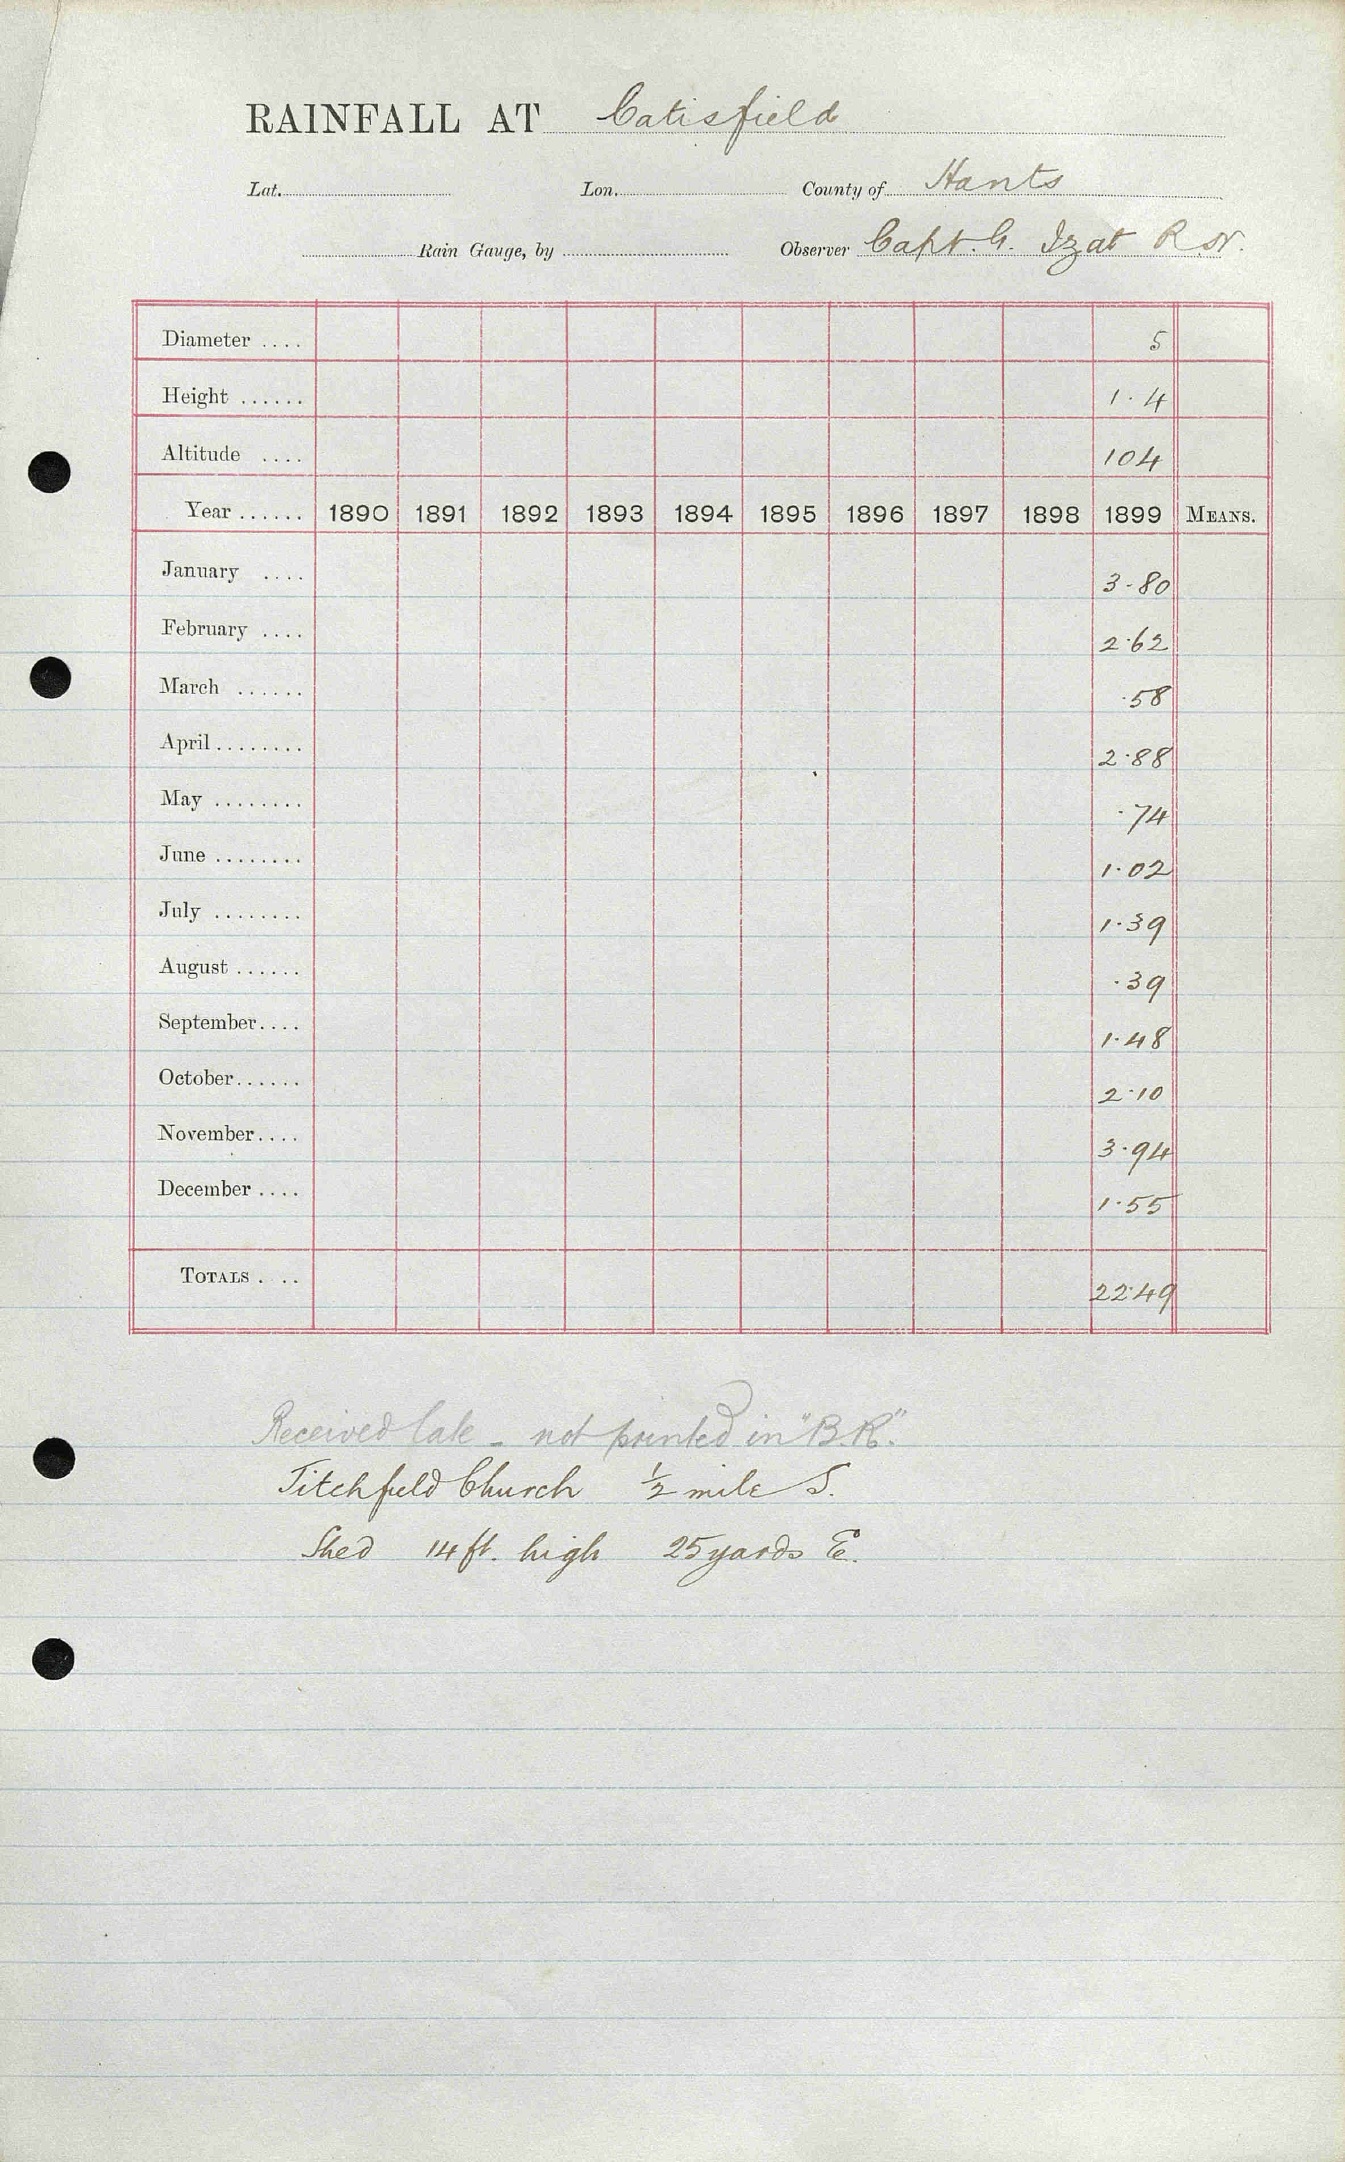 RAINFALL AT Catisfield
Lat. Lon. County of Hants
Rain Gauge, by Observer Capt. G. Izat R.N.
Diameter .... 5
Height ...... 1.4
Altitude .... 104
Year ...... 1890 1891 1892 1893 1894 1895 1896 1897 1898 1899 MEANS.
January .... 3.80
February .... 2.62
March ...... .58
April ........ 2.88
May ........ .74
June ........ 1.02
July ........ 1.39
August ...... .39
September .... 1.48
October ...... 2.10
November .... 3.94
December .... 1.55
TOTALS . .. 22.49
Received late - not printed in "B.R."
Titchfield Church 1/2 mile S.
Shed 14 ft. high 25 yards E.